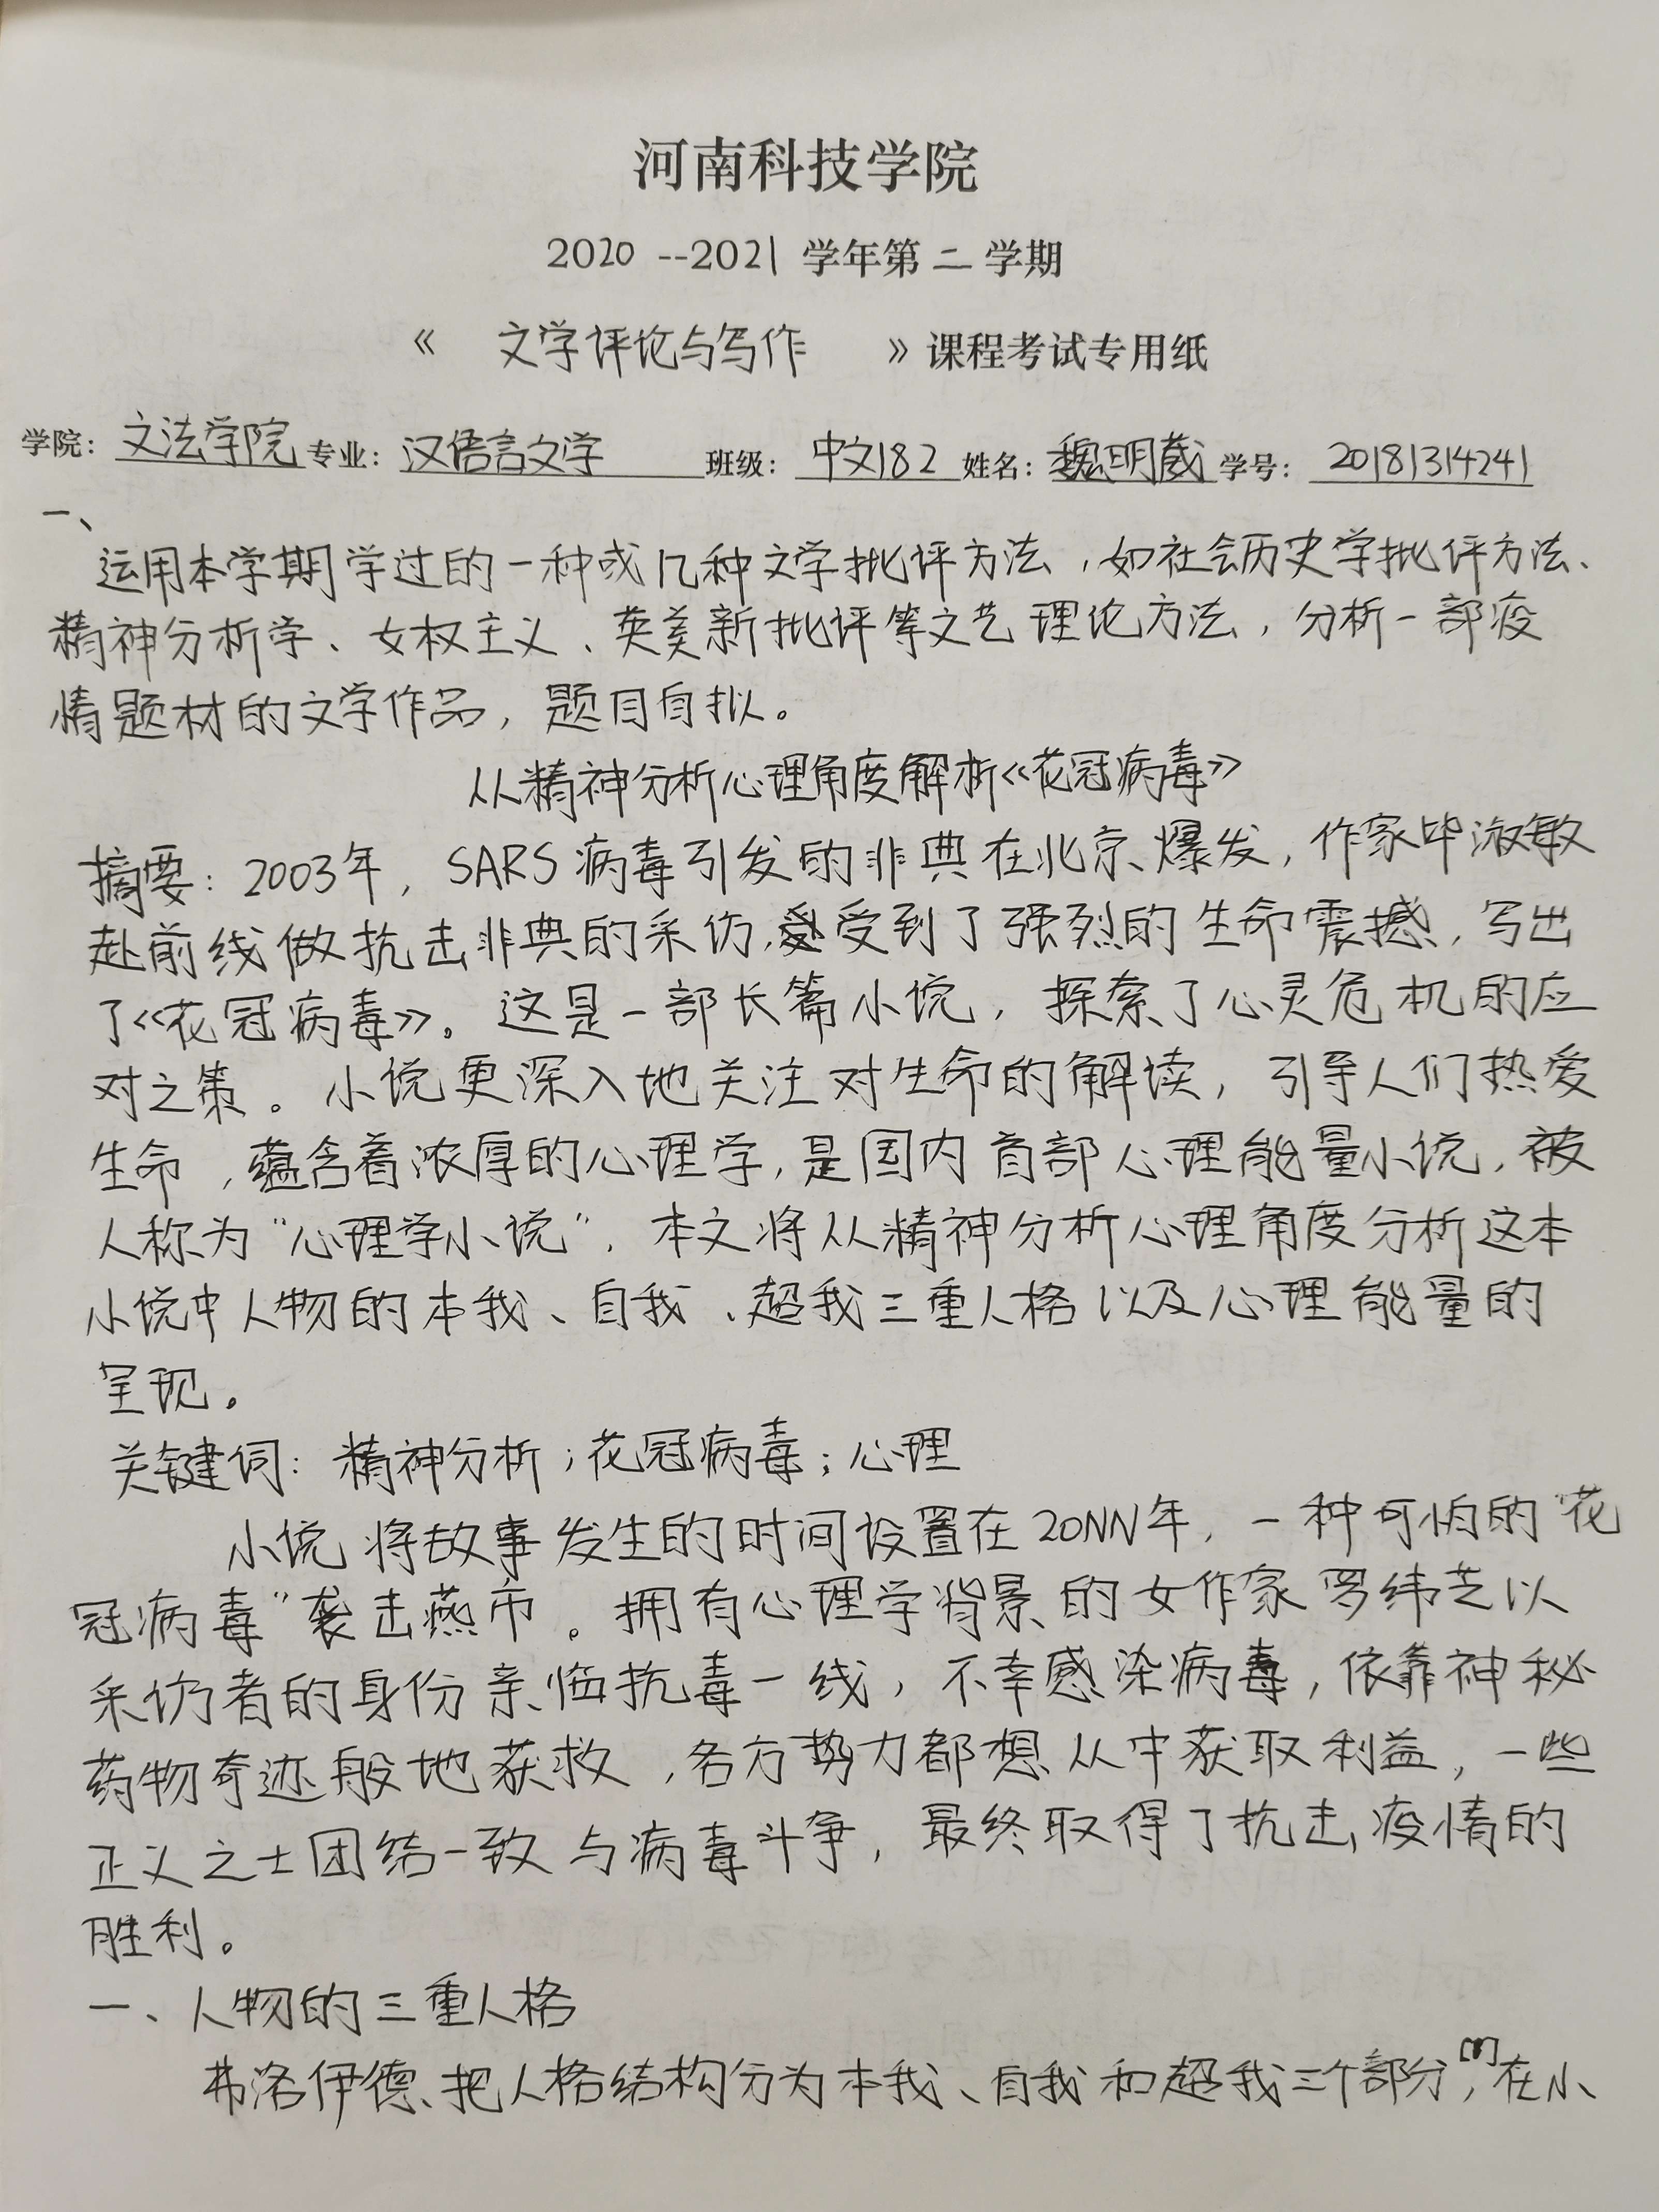 河南科技学院
2020 --2021 学年第 二 学期
《 文学评论与写作 》课程考试专用纸
学院: 文法学院 专业: 汉语言文学 班级: 中文182 姓名: 魏明葳 学号: 20181314241
一、
运用本学期学过的一种或几种文学批评方法,如社会历史学批评方法、
精神分析学、女权主义、英美新批评等文艺理论方法,分析一部疫
情题材的文学作品,题目自拟。
从精神分析心理角度解析《花冠病毒》
摘要:2003年,SARS病毒引发的非典在北京爆发,作家毕淑敏
赴前线做抗击非典的采访,受到了强烈的生命震撼,写出
了《花冠病毒》。这是一部长篇小说,探索了心灵危机的应
对之策。小说更深入地关注对生命的解读,引导人们热爱
生命,蕴含着浓厚的心理学,是国内首部心理能量小说,被
人称为“心理学小说”,本文将从精神分析心理角度分析这本
小说中人物的本我、自我、超我三重人格以及心理能量的
呈现。
关键词:精神分析;花冠病毒;心理
小说将故事发生的时间设置在20NN年,一种可怕的“花
冠病毒”袭击燕市。拥有心理学背景的女作家罗纬芝以
采访者的身份亲临抗毒一线,不幸感染病毒,依靠神秘
药物奇迹般地获救,各方势力都想从中获取利益,一些
正义之士团结一致与病毒斗争,最终取得了抗击疫情的
胜利。
一、人物的三重人格
弗洛伊德把人格结构分为本我、自我和超我三个部分,在小